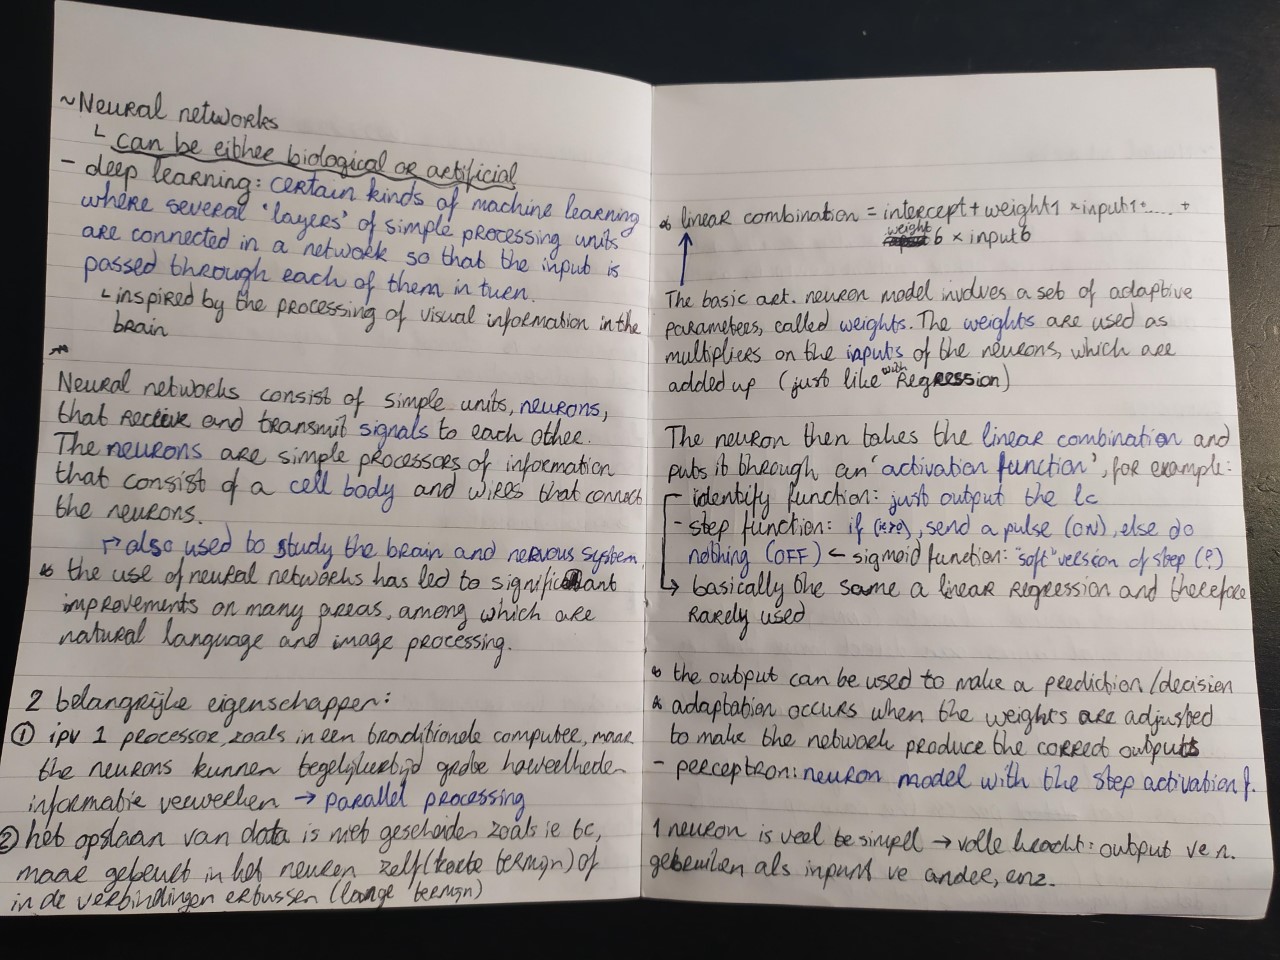 ~Neural networks
└ can be either biological or artificial
- deep learning: certain kinds of machine learning
where several 'layers' of simple processing units
are connected in a network so that the input is
passed through each of them in turn.
└ inspired by the processing of visual information in the
brain
Neural networks consist of simple units, neurons,
that receive and transmit signals to each other.
The neurons are simple processors of information
that consist of a cell body and wires that connect
the neurons.
↱ also used to study the brain and nervous system
the use of neural networks has led to significant
improvements on many areas, among which are
natural language and image processing.
2 belangrijke eigenschappen:
① ipv 1 processor, zoals in een traditionele computer, maar
the neurons kunnen tegelijkertijd grote hoeveelheden
informatie verwerken → parallel processing
② het opslaan van data is niet gescheiden zoals ie tc,
maar gebeurt in het neuron zelf (korte termijn) of
in de verbindingen ertussen (lange termijn)
linear combination = intercept + weight1 × input1 + ..... +
weight 6 × input6
↑
The basic art. neuron model involves a set of adaptive
parameters, called weights. The weights are used as
multipliers on the inputs of the neurons, which are
added up (just like with Regression)
The neuron then takes the linear combination and
puts it through an 'activation function', for example:
- identify function: just output the lc
- step function: if (lc>0), send a pulse (ON), else do
nothing (OFF) ← sigmoid function: "soft" version of step (?)
↳ basically the same a linear regression and therefore
Rarely used
the output can be used to make a prediction / decision
adaptation occurs when the weights are adjusted
to make the network produce the correct outputs
- perceptron: neuron model with the step activation f.
1 neuron is veel te simpel → volle kracht: output ve n.
gebruiken als input ve ander, enz.